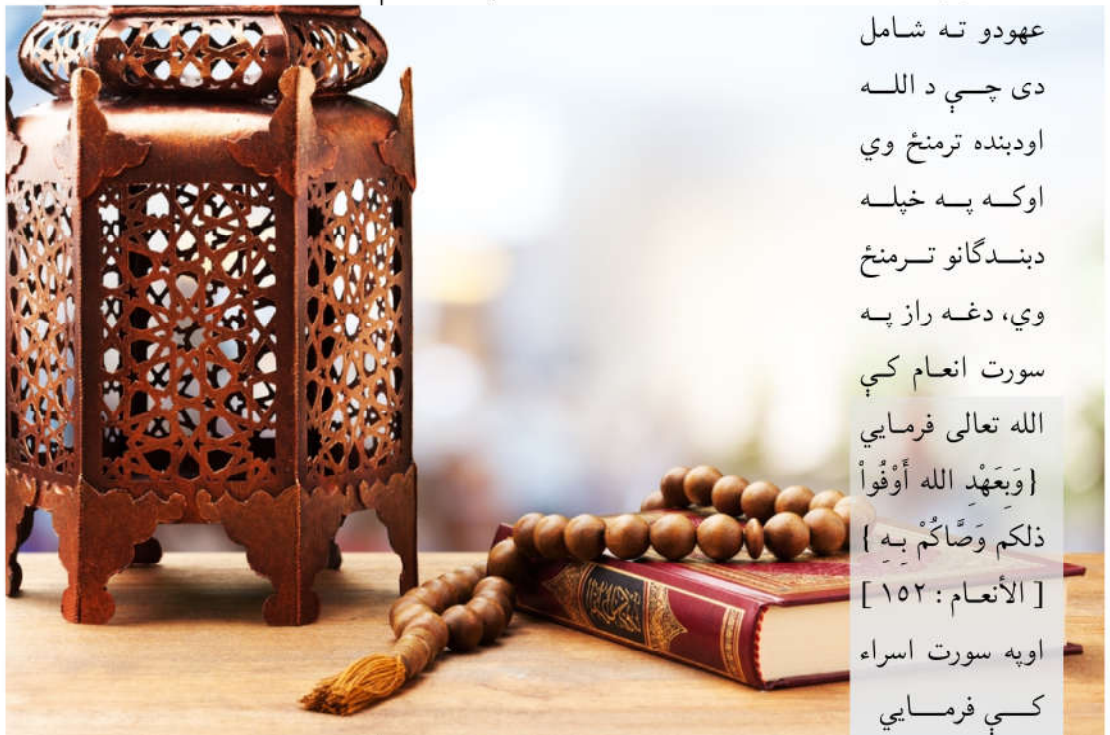 عهودو ته شامل
دی چې د الله
اودبنده ترمنځ وي
اوکه په خپله
دبندگانو ترمنځ
وي، دغه راز په
سورت انعام کې
الله تعالی فرمايي
{وَبِعَهْدِ الله أَوْفُواْ
ذلكم وَصَّاكُمْ بِهِ }
[ الأنعام : ١٥٢ ]
اوپه سورت اسراء
کې فرمايي